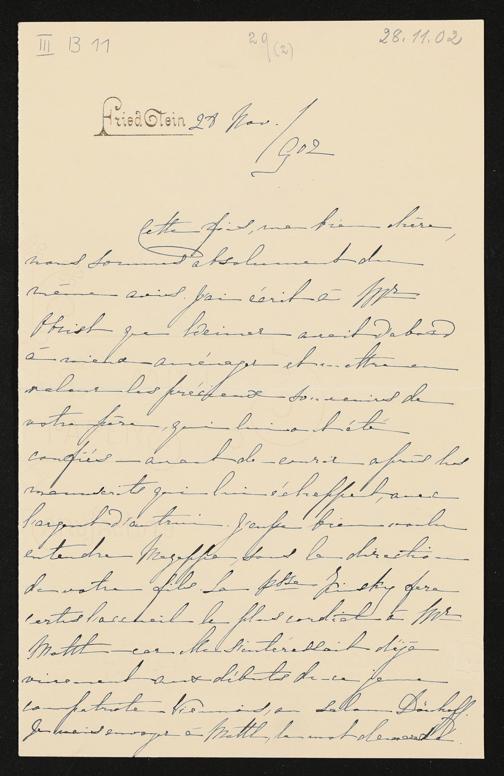 III B 11
29 (2)
28.11.02
Fried Stein 28 Nov./902
Cette fois, ma bien chère,
nous sommes absolument du
même avis. J'ai écrit à Mr
Obrist que Weimar avait d'abord
à mieux aménager et mettre en
valeur les précieux souvenirs de
votre père, qui lui ont été
confiés – avant de courir après les
manuscrits qui lui échappent, avec
l'argent d'autrui. J'eusse bien voulu
entendre Mazeppa, sous la direction
de votre fils. La Psse fera
certes l'accueil le plus cordial à Mr
Mottl – car elle s'intéressait déjà
vivement aux débuts de ce jeune
compatriote Viennois, au salon Dönhoff.
Je vais envoyer à Mottl, le mot demandé.